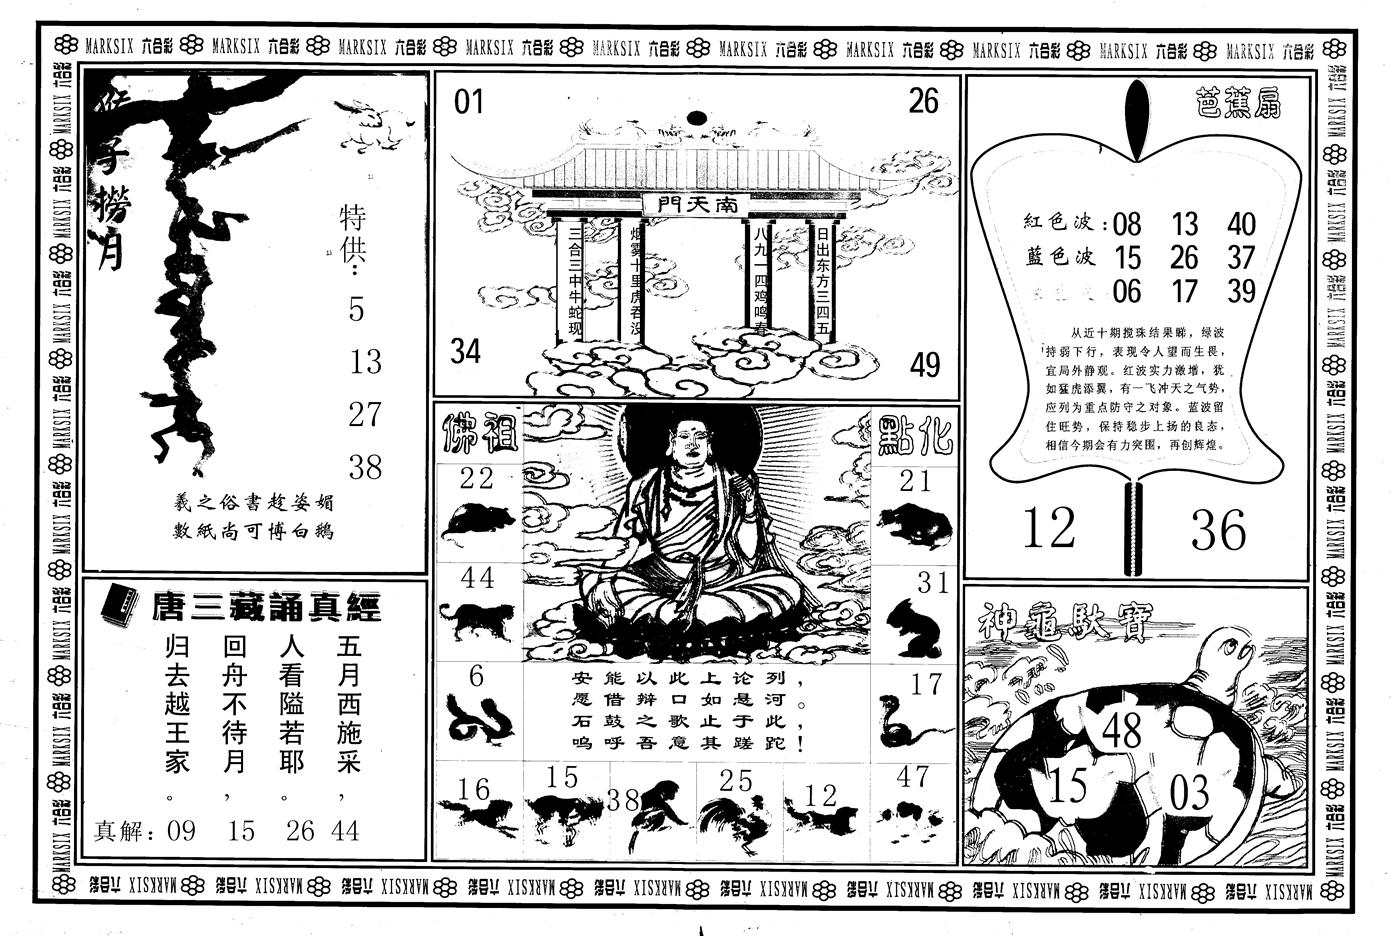 MARKSIX 六合彩 MARKSIX 六合彩 MARKSIX 六合彩 MARKSIX 六合彩 MARKSIX 六合彩 MARKSIX 六合彩 MARKSIX 六合彩 MARKSIX 六合彩 MARKSIX 六合彩 MARKSIX 六合彩
猴子撈月
特供：
5
13
27
38
羲之俗書趁姿媚
數紙尚可博白鵝
01
26
南天門
三合三中牛蛇现
烟雾十里虎吞没
八九一四鸡鸣春
日出东方三四五
34
49
芭蕉扇
紅色波：08 13 40
藍色波 15 26 37
06 17 39
从近十期搅珠结果睇，绿波
持弱下行，表现令人望而生畏，
宜局外静观。红波实力激增，犹
如猛虎添翼，有一飞冲天之气势，
应列为重点防守之对象。蓝波留
住旺势，保持稳步上扬的良态，
相信今期会有力突围，再创辉煌。
12
36
佛祖
點化
22
21
44
31
6
17
安能以此上论列，
愿借辩口如悬河。
石鼓之歌止于此，
呜呼吾意其蹉跎！
16 15 38 25 12 47
唐三藏誦真經
五月西施采，
人看隘若耶。
回舟不待月，
归去越王家。
真解：09 15 26 44
神龜馱寶
48
15
03
MARKSIX 六合彩 MARKSIX 六合彩 MARKSIX 六合彩 MARKSIX 六合彩 MARKSIX 六合彩 MARKSIX 六合彩 MARKSIX 六合彩 MARKSIX 六合彩 MARKSIX 六合彩 MARKSIX 六合彩